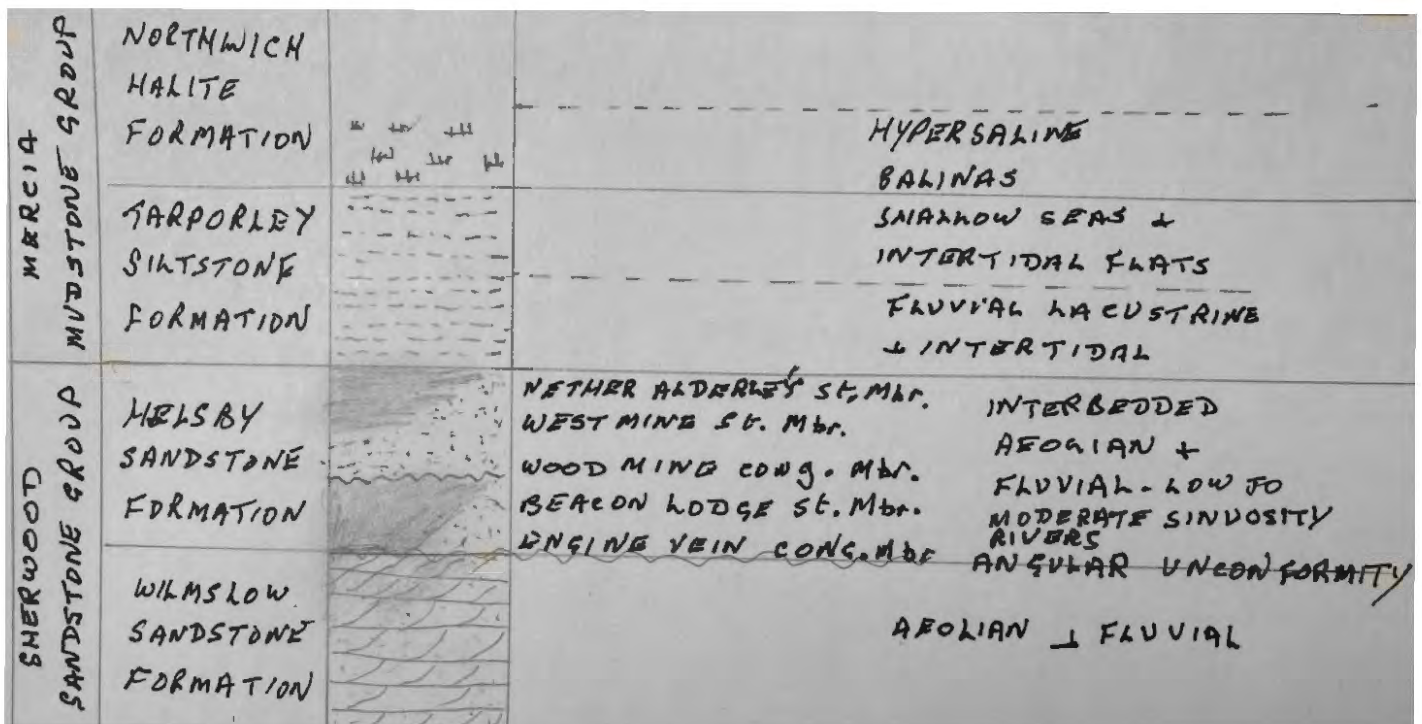 MERCIA
MUDSTONE GROUP
NORTHWICH
HALITE
FORMATION
HYPERSALINE
BALINAS
TARPORLEY
SILTSTONE
FORMATION
SHALLOW SEAS +
INTERTIDAL FLATS
FLUVIAL LACUSTRINE
+ INTERTIDAL
SHERWOOD
SANDSTONE GROUP
HELSBY
SANDSTONE
FORMATION
NETHER ALDERLEY St. Mbr.
WEST MINE St. Mbr.
WOOD MINE cong. Mbr.
BEACON LODGE St. Mbr.
ENGINE VEIN CONG. Mbr
INTERBEDDED
AEOLIAN +
FLUVIAL - LOW TO
MODERATE SINUOSITY
RIVERS
ANGULAR UNCONFORMITY
WILMSLOW
SANDSTONE
FORMATION
AEOLIAN + FLUVIAL